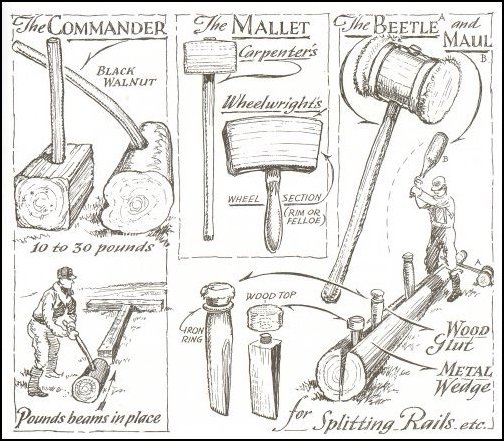 The COMMANDER
BLACK
WALNUT
10 to 30 pounds
Pounds beams in place
The MALLET
Carpenter's
Wheelwright's
WHEEL SECTION
(RIM OR
FELLOE)
The BEETLE A and
MAUL
B
B
A
IRON
RING
WOOD TOP
WOOD
Glut
METAL
Wedge
for Splitting Rails etc.